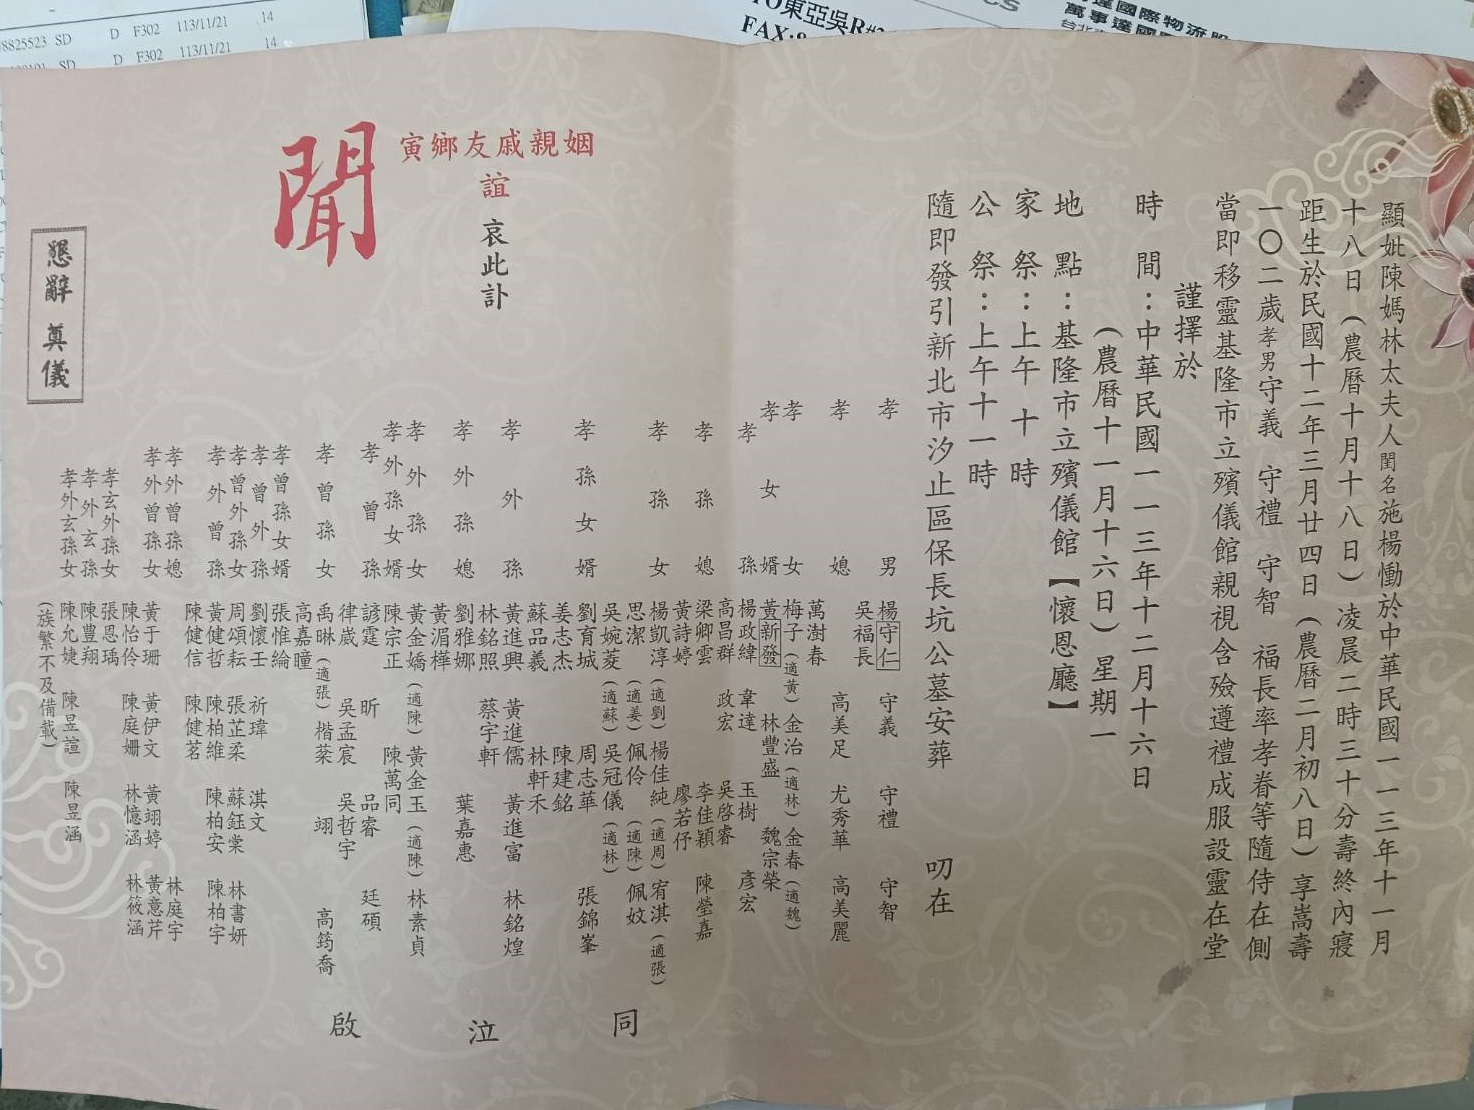 8825523 SD D F302 113/11/21 14
SD D F302 113/11/21 14
TO東亞吳R#2
FAX:8
達國際物流股
萬事達國際
台北
顯妣陳媽林太夫人閨名施楊慟於中華民國一一三年十一月
十八日(農曆十月十八日)凌晨二時三十分壽終內寢
距生於民國十二年三月廿四日(農曆二月初八日)享嵩壽
一〇二歲孝男守義 守禮 守智 福長率孝眷等隨侍在側
當即移靈基隆市立殯儀館親視含殮遵禮成服設靈在堂
謹擇於
時 間:中華民國一一三年十二月十六日
(農曆十一月十六日)星期一
地 點:基隆市立殯儀館【懷恩廳】
家 祭:上午 十 時
公 祭:上午十一時
隨即發引新北市汐止區保長坑公墓安葬 叨在
孝 男 楊守仁 守義 守禮 守智
吳福長
孝 媳 高美足 尤秀華 高美麗
萬澍春
孝 女 梅子(適黃) 金治(適林) 金春(適魏)
孝 女 婿 黃新發 林豐盛 魏宗榮
孝 孫 楊政緯 韋達 玉樹 彥宏
高昌群 政宏 吳啓睿
孝 孫 媳 梁卿雲 李佳穎 陳瑩嘉
黃詩婷 廖若伃
孝 孫 女 楊凱淳(適劉) 楊佳純(適周) 宥淇(適張)
思潔(適姜) 佩伶(適陳) 佩妏
吳婉菱(適蘇) 吳冠儀(適林)
孝 孫 女 婿 劉育城 周志華 張錦峯
姜志杰 陳建銘
蘇品義 林軒禾
孝 外 孫 黃進興 黃進儒 黃進富 林銘煌
林銘照 蔡宇軒
孝 外 孫 媳 劉雅娜 葉嘉惠
黃湄樺
孝 外 孫 女 黃金嬌(適陳) 黃金玉(適陳) 林素貞
孝外孫女婿 陳宗正 陳萬同
孝 曾 孫 諺霆 昕 品睿 廷碩
律崴 吳孟宸 吳哲宇
孝 曾 孫 女 禹晽(適張) 楷棻 翊 高筠喬
高嘉曈
孝曾孫女婿 張惟綸
孝曾外孫 劉懷壬 祈瑋 淇文
孝曾外孫女 周頌耘 張芷柔 蘇鈺棠 林書妍
孝外曾孫 黃健哲 陳柏維 陳柏安 陳柏宇
陳健信 陳健茗
孝外曾孫媳 林庭宇
孝外曾孫女 黃于珊 黃伊文 黃翊婷 黃意芹
陳怡伶 陳庭姍 林憶涵 林筱涵
孝玄外孫女 張恩瑀
孝外玄孫 陳豐翔
孝外玄孫女 陳允婕 陳昱諠 陳昱涵
(族繁不及備載)
同 泣 啟
姻親戚友鄉寅
誼 哀此訃
聞
懇辭 奠儀